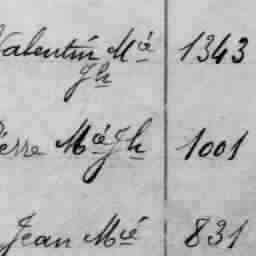 Valentin Mié 1343
Jh
Pierre Mié Jh 1001
Jean Mié 831